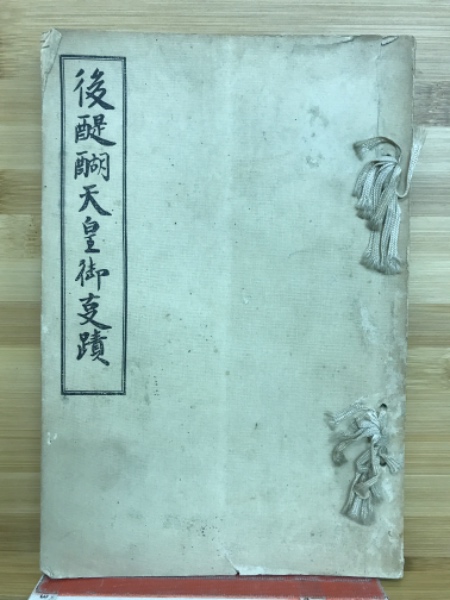 後醍醐天皇御叓蹟